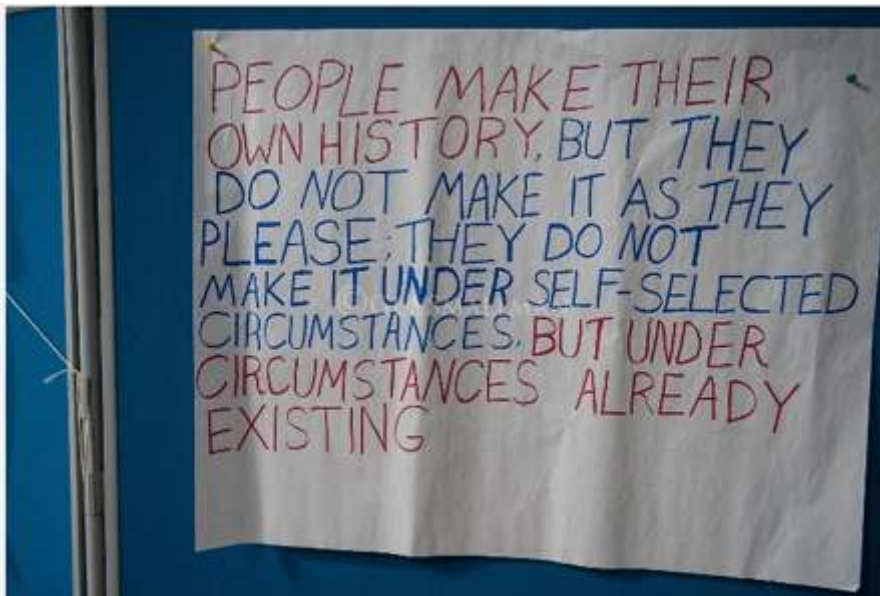 PEOPLE MAKE THEIR
OWN HISTORY, BUT THEY
DO NOT MAKE IT AS THEY
PLEASE; THEY DO NOT
MAKE IT UNDER SELF-SELECTED
CIRCUMSTANCES, BUT UNDER
CIRCUMSTANCES ALREADY
EXISTING